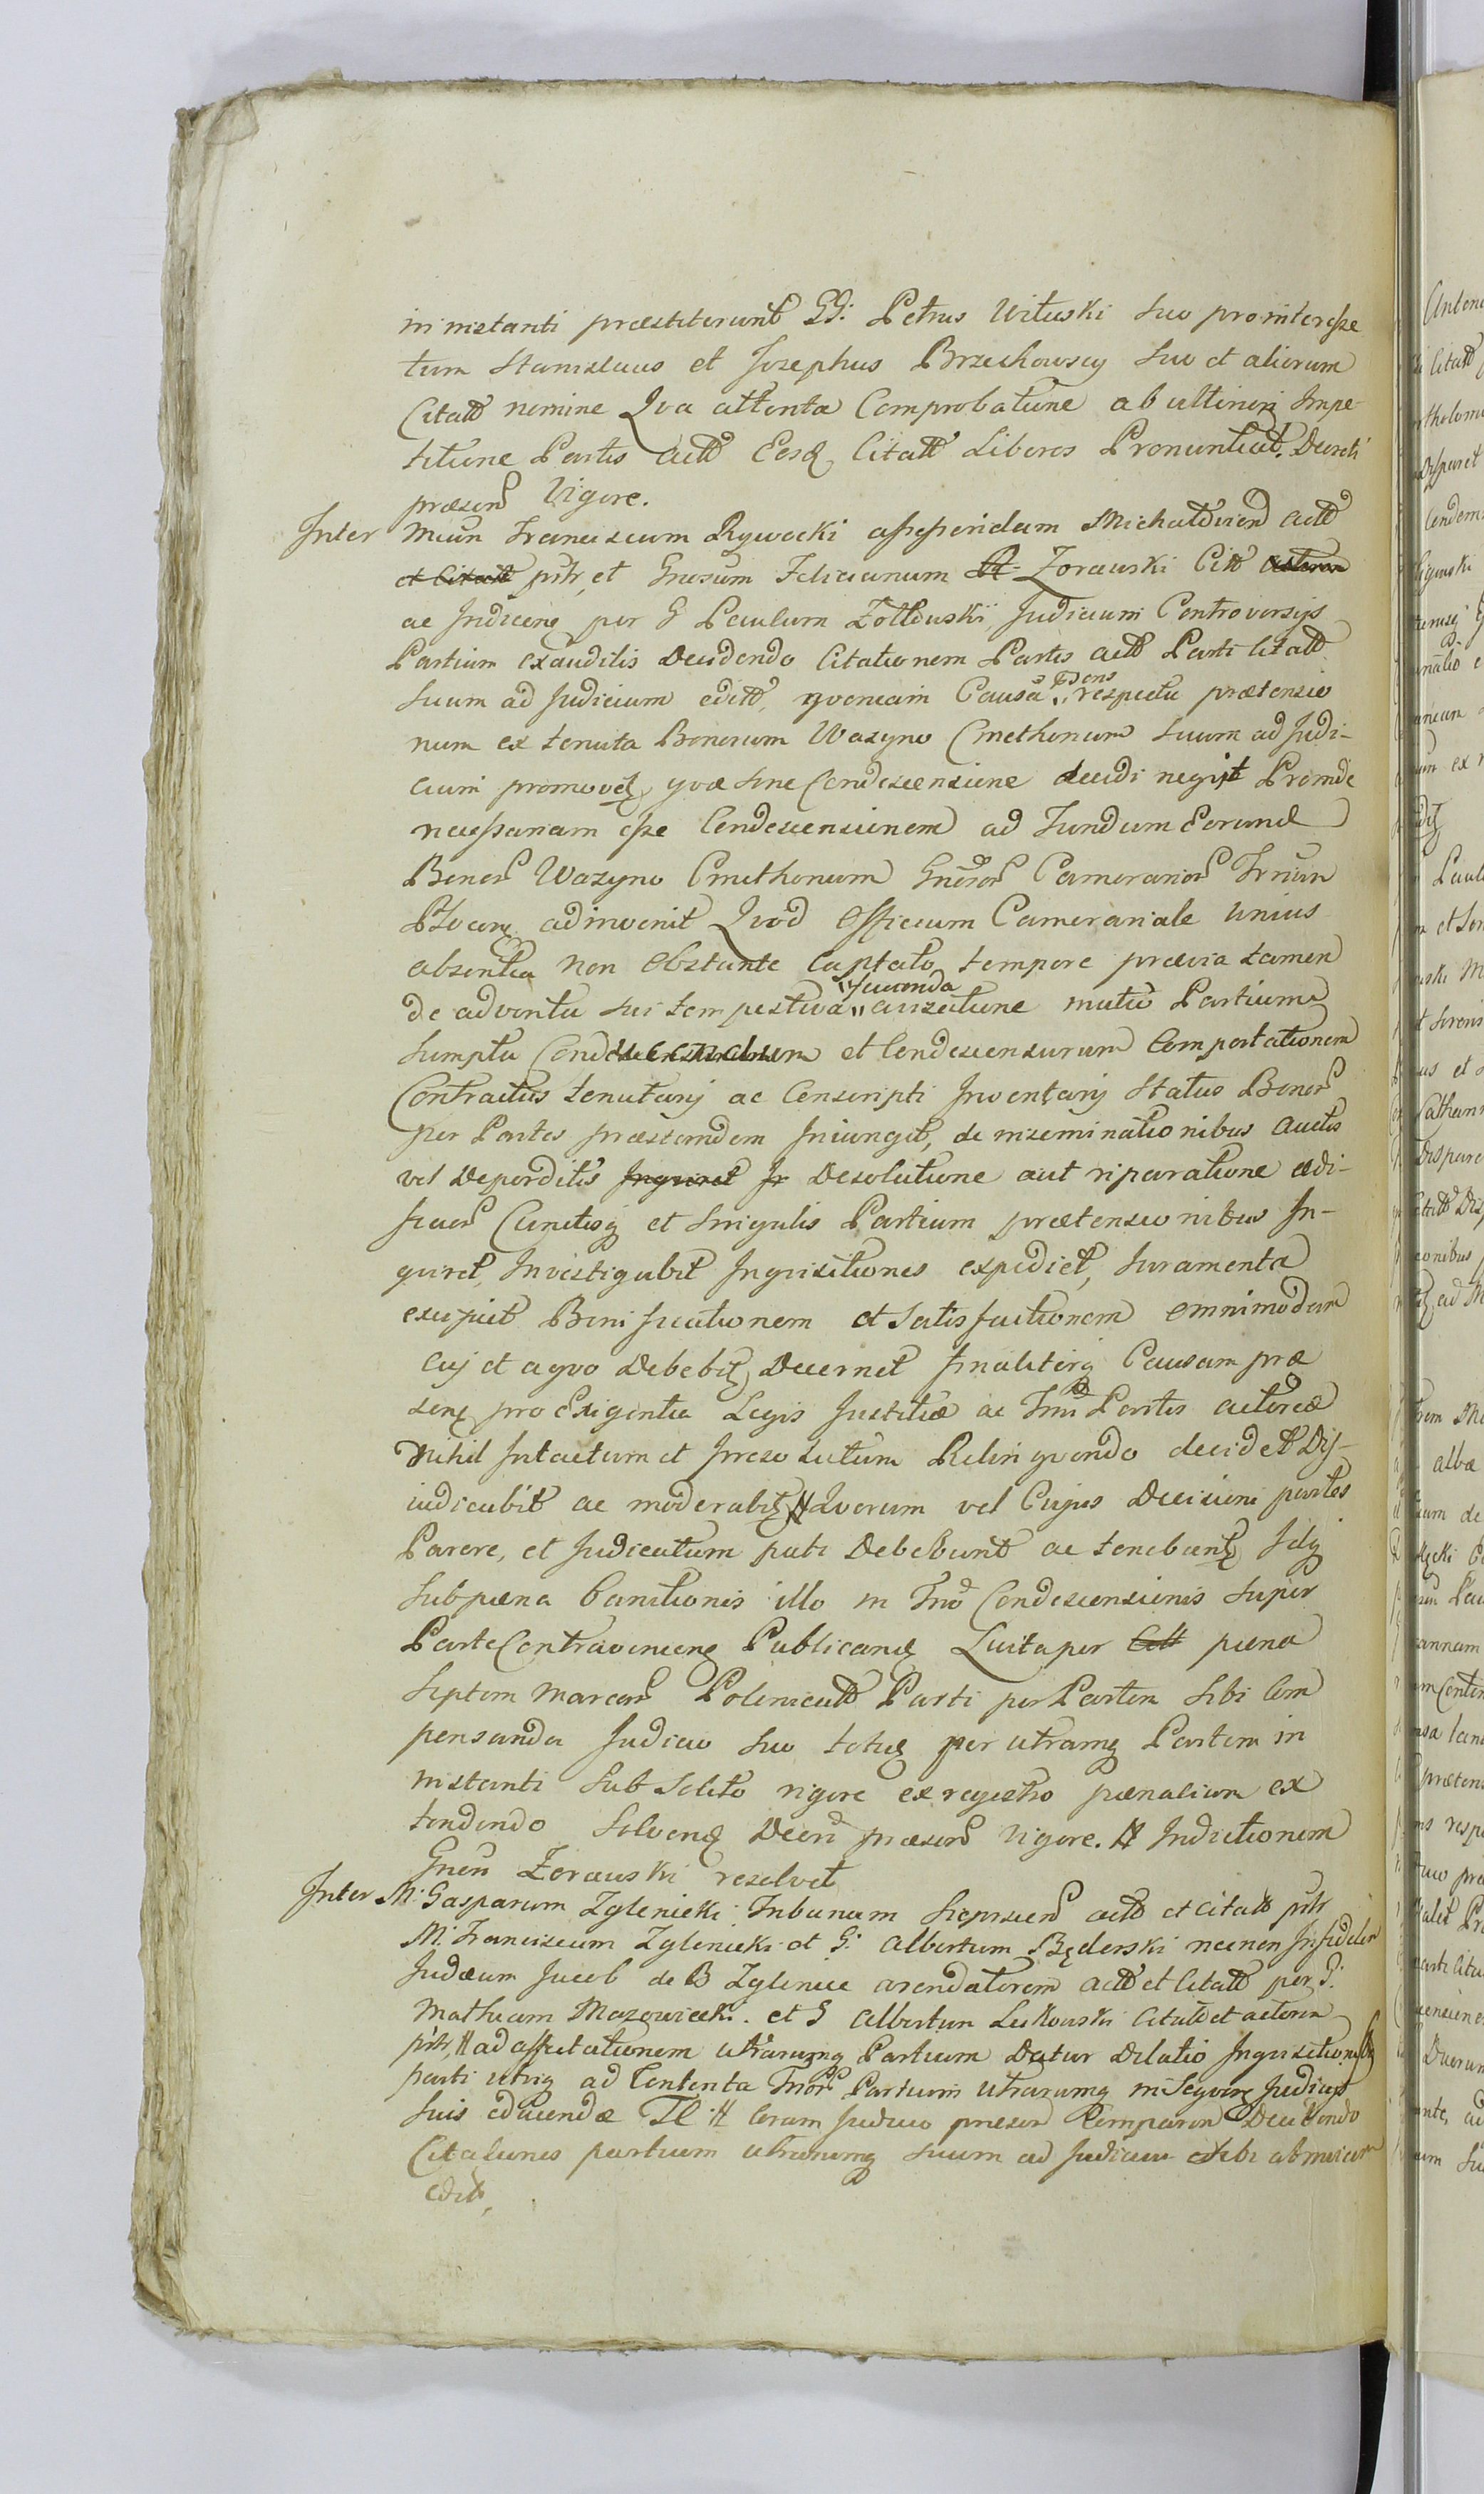 in instanti præstiterunt GG: Petrus Wituski suo pro interesse
tum Stanislaus et Josephus Brzechowscy suo et aliorum
Citatt nomine Qva attenta Comprobatione ab ulteriori Impe-
titione Partis Actt Eosq Citatt Liberos Pronuntiat. Decreti
præsen Vigore.
Inter Mcum Franciscum Rywocki assessendam Actt
et Citatt pttr, et Gnosum Felicianum Zorauski Citt
ac Judicene per G Paulum Zołtouski Judicium Controversijs
Partium exauditis Decidendo Citationem Partis Actt Parti Citatt
suum ad Judicium editt, qvoniam Causa respectu prætensio
num ex tenuta Bonorum Wazyno Cmethonum suum ad Judi-
cium promovetq qvæ sine Condescensione decidi neqvit Proinde
necessariam esse Condescensionem ad Fundum Eorund
Bonor Wazyno Cmethonum Gneror Camerarior Trrum
Płocen adinvenit Qvod Officium Camerariale unius
absentia non Obstante Captato tempore prævia tamen
de adventu sui tempestiva "facienda" avizatione mutuo Partium
sumptu et Condescensurum Comportationem
Contractus tenutarij ac Conscripti Inventarij Status Bonor
per Partes præstandam Iniungit, de inseminationibus Auctis
vel Deperditis Inqviret Desolatione aut riparatione ædi-
ficior Cunctisq et Singulis Partium prætensionibus In-
qviret, Investigabit Inqvisitiones expediet, Juramenta
excipiet Bonificationem et Satisfactionem omnimodam
cuj et a qvo Debebitq Decernet finaliterq Causam præ
sen pro Exigentia Legis Justitiæ ac Tmi Partis actoreæ
Nihil Intactum et Irresolutum Relinqvendo decidet Dij-
iudicabit ac moderabitq Qvorum vel Cujus Decisioni partes
Parere, et Judicatum pati Debebunt ac tenebuntq Idq
Sub pæna banitionis illo in Tmo Condescensionis super
Parte Contravenien Publicand Luita per pæna
Septem Marcar Polonicatt Parti per Partem sibi Com
pensanda Judicio suo totid per utramq Partem in
instanti sub solito rigore ex regestro pænalium ex
tendendo Solvend Decri præsen Vigore. Inductionem
Gnesi Zorauski resolvet
Inter M: Gasparum Zglenicki Tribunum Sieprscen actt et citatt pttr
M: Franciscum Zglenicki et G: Albertum Będerski necnon Infidelem
Judæum Jacob de B Zglenice arendatorem actt et Citatt per G:
Mathiam Mazowiecki. et G Albertum Leskouski Citatt et actorem
pttr, ad affectationem utrarumq Partium Datur Dilatio Inqvisitionis
parti utriq ad Contenta Tmor Partium utrarumq in Seqven Judicijs
suis educendæ Coram Judicio præsen Comparen Decidendo
Citationes partium utrarumq suum ad Judicium sibi abinvicem
edit,